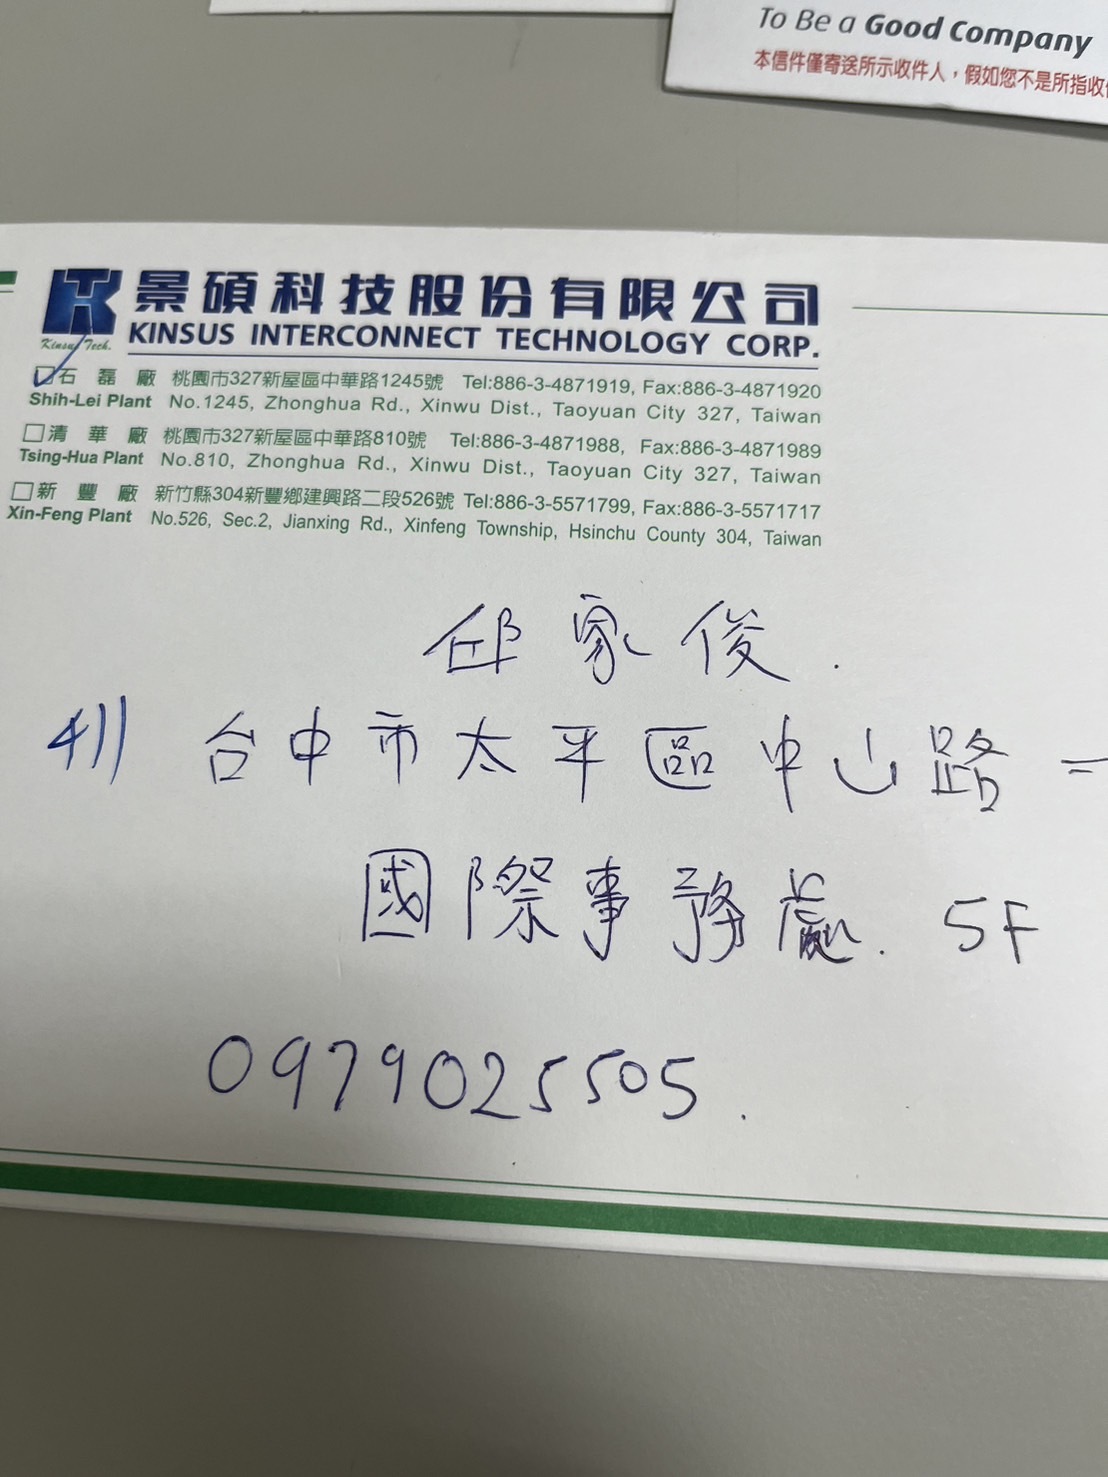 To Be a Good Company
本信件僅寄送所示收件人，假如您不是所指收
景碩科技股份有限公司
KINSUS INTERCONNECT TECHNOLOGY CORP.
Kinsus Tech.
石磊廠 桃園市327新屋區中華路1245號 Tel:886-3-4871919, Fax:886-3-4871920
Shih-Lei Plant No.1245, Zhonghua Rd., Xinwu Dist., Taoyuan City 327, Taiwan
清華廠 桃園市327新屋區中華路810號 Tel:886-3-4871988, Fax:886-3-4871989
Tsing-Hua Plant No.810, Zhonghua Rd., Xinwu Dist., Taoyuan City 327, Taiwan
新豐廠 新竹縣304新豐鄉建興路二段526號 Tel:886-3-5571799, Fax:886-3-5571717
Xin-Feng Plant No.526, Sec.2, Jianxing Rd., Xinfeng Township, Hsinchu County 304, Taiwan
邱家俊.
411 台中市太平區中山路
國際事務處. 5F
0979025505.